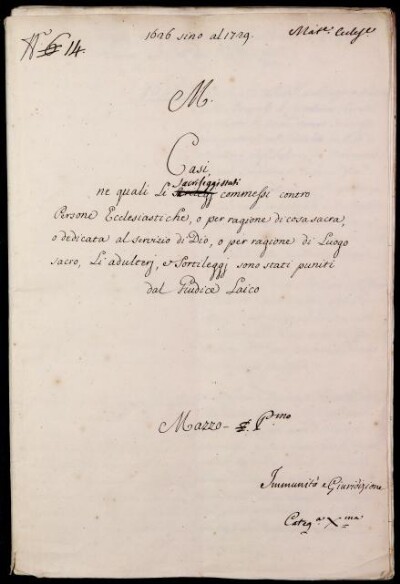 1626 sino al 1729.
Mat.e Eccles.e
N.° 6 14.
M.
Casi
ne quali Li Sacrileggj stati commessi contro
Persone Ecclesiastiche, o per ragione di cosa sacra,
o dedicata al servizio di Dio, o per ragione di Luogo
sacro, Li adulterj, e Sortileggj sono stati puniti
dal Giudice Laico
Mazzo P.mo
Immunità e Giurisdizione
Categ.a X.ma